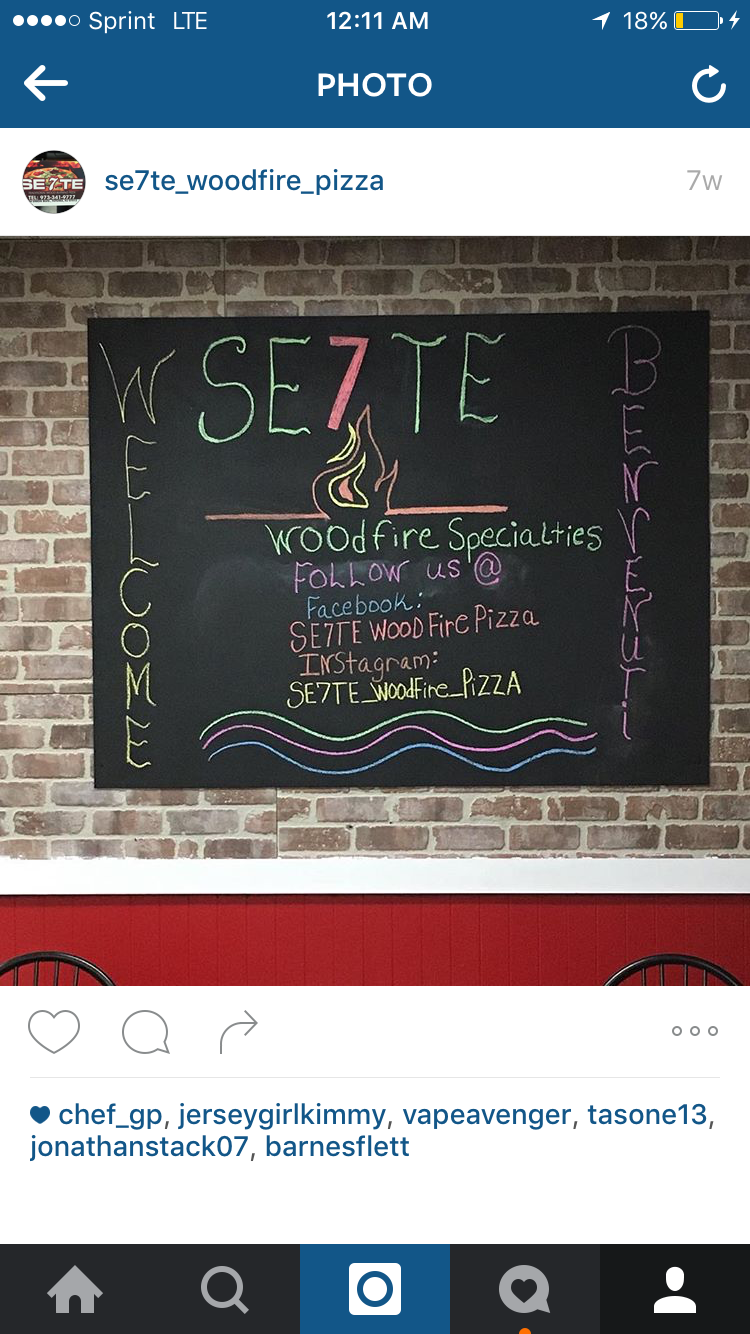 Sprint LTE 12:11 AM 18%
PHOTO
SE7TE
se7te_woodfire_pizza 7w
SE7TE
WELCOME
BENVENUTi
WOOdfire Specialties
FOLLOW us @
Facebook:
SE7TE WOOD Fire Pizza
INStagram:
SE7TE_WoodFire_PiZZA
chef_gp, jerseygirlkimmy, vapeavenger, tasone13,
jonathanstack07, barnesflett